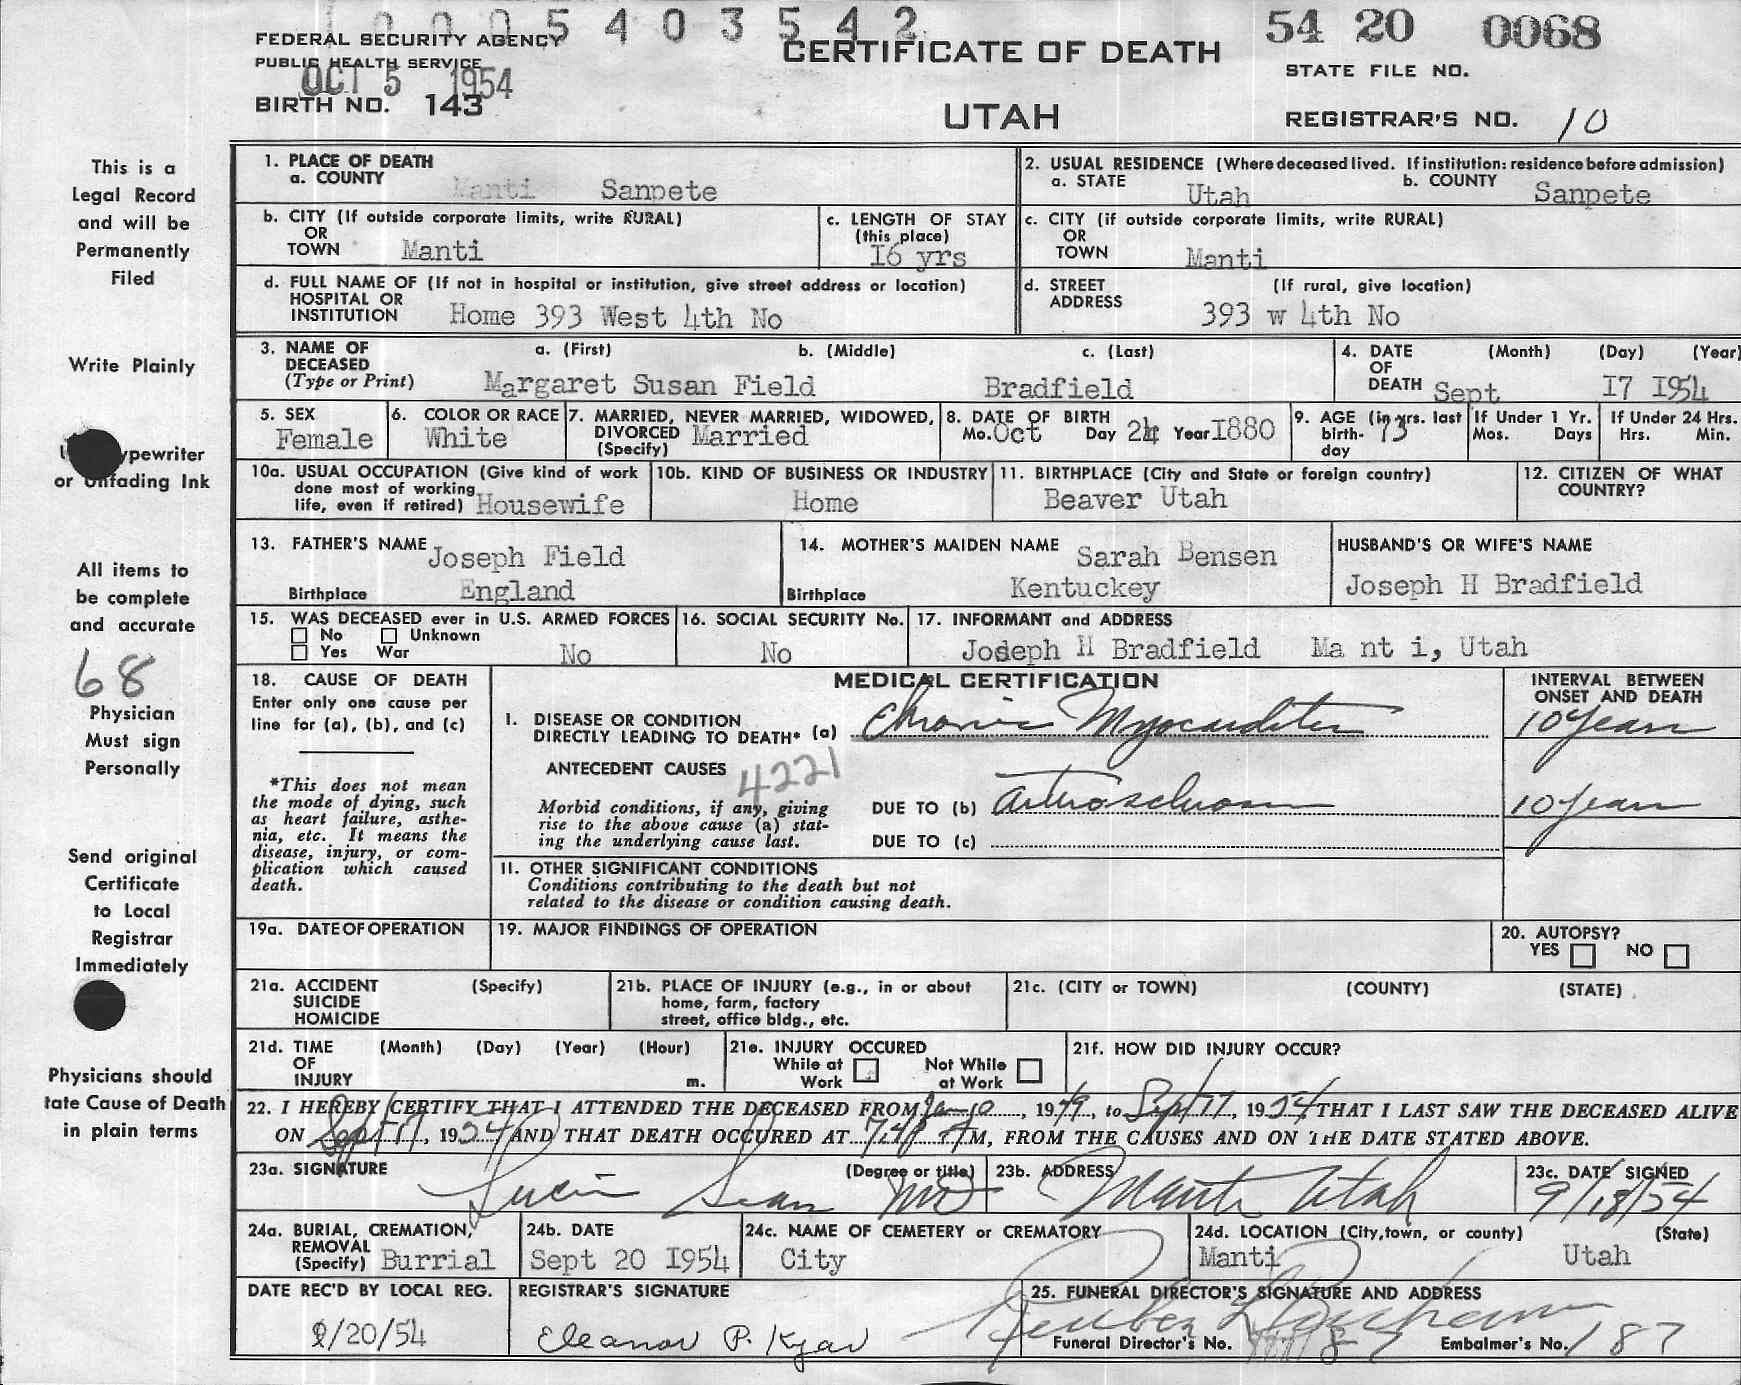 0005403542
FEDERAL SECURITY AGENCY
PUBLIC HEALTH SERVICE
OCT 5 1954
BIRTH NO. 143
CERTIFICATE OF DEATH
UTAH
54 20 0068
STATE FILE NO.
REGISTRAR'S NO. 10
This is a
Legal Record
and will be
Permanently
Filed
Write Plainly
ypewriter
or Unfading Ink
All items to
be complete
and accurate
68
Physician
Must sign
Personally
Send original
Certificate
to Local
Registrar
Immediately
Physicians should
tate Cause of Death
in plain terms
1. PLACE OF DEATH
a. COUNTY Manti Sanpete
2. USUAL RESIDENCE (Where deceased lived. If institution: residence before admission)
a. STATE Utah b. COUNTY Sanpete
b. CITY (If outside corporate limits, write RURAL)
OR
TOWN Manti
c. LENGTH OF STAY
(this place)
I6 yrs
c. CITY (if outside corporate limits, write RURAL)
OR
TOWN Manti
d. FULL NAME OF (If not in hospital or institution, give street address or location)
HOSPITAL OR
INSTITUTION Home 393 West 4th No
d. STREET (If rural, give location)
ADDRESS 393 w 4th No
3. NAME OF a. (First) b. (Middle) c. (Last)
DECEASED
(Type or Print) Margaret Susan Field Bradfield
4. DATE (Month) (Day) (Year)
OF
DEATH Sept I7 I954
5. SEX
Female
6. COLOR OR RACE
White
7. MARRIED, NEVER MARRIED, WIDOWED,
DIVORCED Married
(Specify)
8. DATE OF BIRTH
Mo. Oct Day 24 Year I880
9. AGE (in yrs. last
birth- 73
day
If Under 1 Yr.
Mos. Days
If Under 24 Hrs.
Hrs. Min.
10a. USUAL OCCUPATION (Give kind of work
done most of working
life, even if retired) Housewife
10b. KIND OF BUSINESS OR INDUSTRY
Home
11. BIRTHPLACE (City and State or foreign country)
Beaver Utah
12. CITIZEN OF WHAT
COUNTRY?
13. FATHER'S NAME Joseph Field
Birthplace England
14. MOTHER'S MAIDEN NAME Sarah Bensen
Birthplace Kentuckey
HUSBAND'S OR WIFE'S NAME
Joseph H Bradfield
15. WAS DECEASED ever in U.S. ARMED FORCES
No Unknown
Yes War No
16. SOCIAL SECURITY No.
No
17. INFORMANT and ADDRESS
Joseph H Bradfield Ma nt i, Utah
18. CAUSE OF DEATH
Enter only one cause per
line for (a), (b), and (c)
*This does not mean
the mode of dying, such
as heart failure, asthe-
nia, etc. It means the
disease, injury, or com-
plication which caused
death.
MEDICAL CERTIFICATION
INTERVAL BETWEEN
ONSET AND DEATH
I. DISEASE OR CONDITION
DIRECTLY LEADING TO DEATH* (a) Chronic Myocarditis 10 years
ANTECEDENT CAUSES 4221
Morbid conditions, if any, giving
rise to the above cause (a) stat-
ing the underlying cause last.
DUE TO (b) 10 years
DUE TO (c)
II. OTHER SIGNIFICANT CONDITIONS
Conditions contributing to the death but not
related to the disease or condition causing death.
19a. DATE OF OPERATION
19. MAJOR FINDINGS OF OPERATION
20. AUTOPSY?
YES NO
21a. ACCIDENT (Specify)
SUICIDE
HOMICIDE
21b. PLACE OF INJURY (e.g., in or about
home, farm, factory
street, office bldg., etc.
21c. (CITY or TOWN) (COUNTY) (STATE)
21d. TIME (Month) (Day) (Year) (Hour)
OF
INJURY m.
21e. INJURY OCCURED
While at Work Not While at Work
21f. HOW DID INJURY OCCUR?
22. I HEREBY CERTIFY THAT I ATTENDED THE DECEASED FROM 1949, to Sept 17, 1954 THAT I LAST SAW THE DECEASED ALIVE
ON Sept 17, 1954 AND THAT DEATH OCCURED AT M, FROM THE CAUSES AND ON THE DATE STATED ABOVE.
23a. SIGNATURE (Degree or title) MD
23b. ADDRESS Manti Utah
23c. DATE SIGNED
9/18/54
24a. BURIAL, CREMATION,
REMOVAL
(Specify) Burrial
24b. DATE
Sept 20 I954
24c. NAME OF CEMETERY or CREMATORY
City
24d. LOCATION (City, town, or county) (State)
Manti Utah
DATE REC'D BY LOCAL REG.
9/20/54
REGISTRAR'S SIGNATURE
Eleanor P. Kjar
25. FUNERAL DIRECTOR'S SIGNATURE AND ADDRESS
Funeral Director's No. Embalmer's No. 187